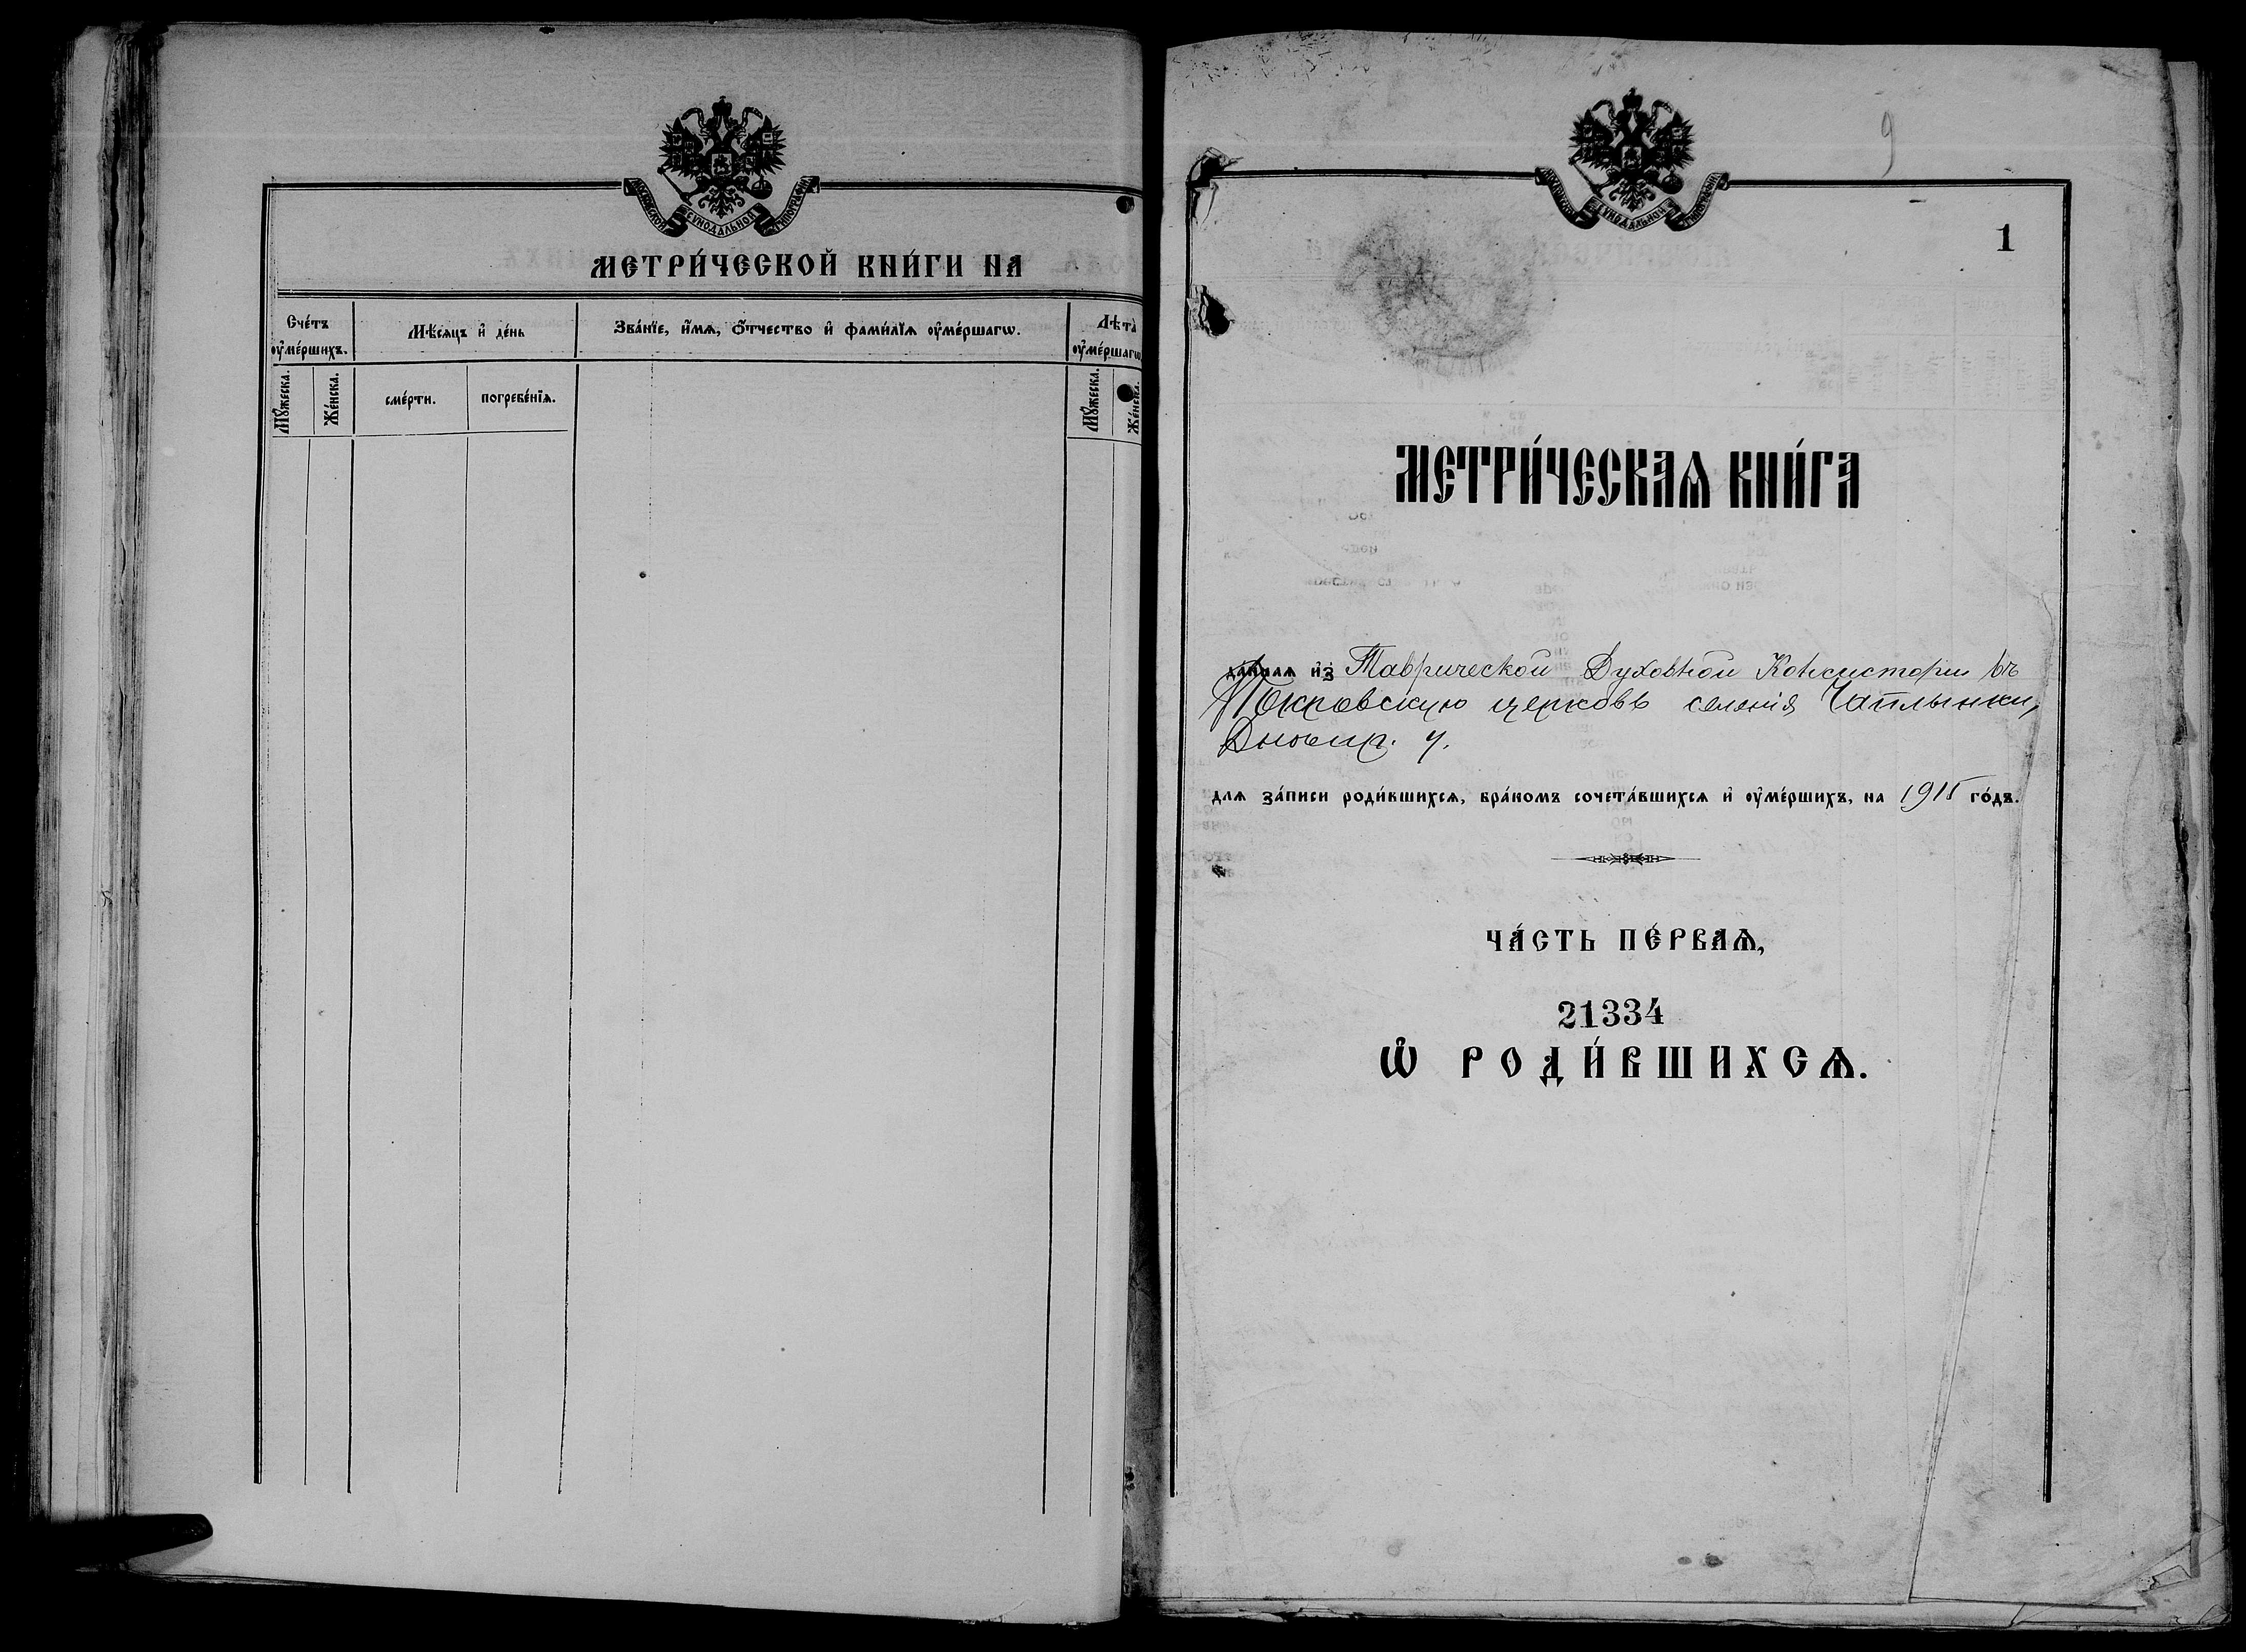 МОСКОВСКОЙ СѴНОДАЛЬНОЙ ТИПОГРАФІИ
МЕТРИ́ЧЕСКОЙ КНИ́ГИ НА
Сче́тъ оу҆ме́ршихъ.
Мѣ́сяцъ и҆ де́нь
Зва́нїе, и҆́мѧ, ѻ҆́тчество и҆ фами́лїѧ оу҆ме́ршагѡ.
Лѣта̀ оу҆ме́ршагѡ
Мꙋ́жеска.
Же́нска.
сме́рти.
погребе́нїѧ.
Мꙋ́жеска.
Же́нска.
9
МОСКОВСКОЙ СѴНОДАЛЬНОЙ ТИПОГРАФІИ
1
МЕТРИ́ЧЕСКАѦ КНИ́ГА
да́ннаѧ и҆з̾ Таврической Духовной Консисторіи въ
Покровскую церковь селенія Чаплынки,
Днѣпр. у.
длѧ за́писи роди́вшихсѧ, бра́комъ сочета́вшихсѧ и҆ оу҆ме́ршихъ, на 1915 го́дъ.
ЧА́СТЬ ПЕ́РВАѦ,
21334
Ѽ РОДИ́ВШИХСѦ.